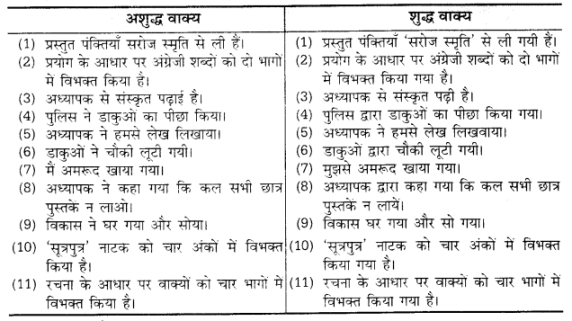 अशुद्ध वाक्य
(1) प्रस्तुत पंक्तियाँ सरोज स्मृति से ली हैं।
(2) प्रयोग के आधार पर अंग्रेजी शब्दों को दो भागों
में विभक्त किया है।
(3) अध्यापक से संस्कृत पढ़ाई है।
(4) पुलिस ने डाकुओं का पीछा किया।
(5) अध्यापक ने हमसे लेख लिखाया।
(6) डाकुओं ने चौकी लूटी गयी।
(7) मैं अमरूद खाया गया।
(8) अध्यापक ने कहा गया कि कल सभी छात्र
पुस्तकें न लाओ।
(9) विकास ने घर गया और सोया।
(10) 'सूत्रपुत्र' नाटक को चार अंकों में विभक्त
किया है।
(11) रचना के आधार पर वाक्यों को चार भागों में
विभक्त किया है।
शुद्ध वाक्य
(1) प्रस्तुत पंक्तियाँ 'सरोज स्मृति' से ली गयी हैं।
(2) प्रयोग के आधार पर अंग्रेजी शब्दों को दो भागों
में विभक्त किया गया है।
(3) अध्यापक से संस्कृत पढ़ी है।
(4) पुलिस द्वारा डाकुओं का पीछा किया गया।
(5) अध्यापक ने हमसे लेख लिखवाया।
(6) डाकुओं द्वारा चौकी लूटी गयी।
(7) मुझसे अमरूद खाया गया।
(8) अध्यापक द्वारा कहा गया कि कल सभी छात्र
पुस्तकें न लायें।
(9) विकास घर गया और सो गया।
(10) 'सूत्रपुत्र' नाटक को चार अंकों में विभक्त
किया गया है।
(11) रचना के आधार पर वाक्यों को चार भागों में
विभक्त किया गया है।